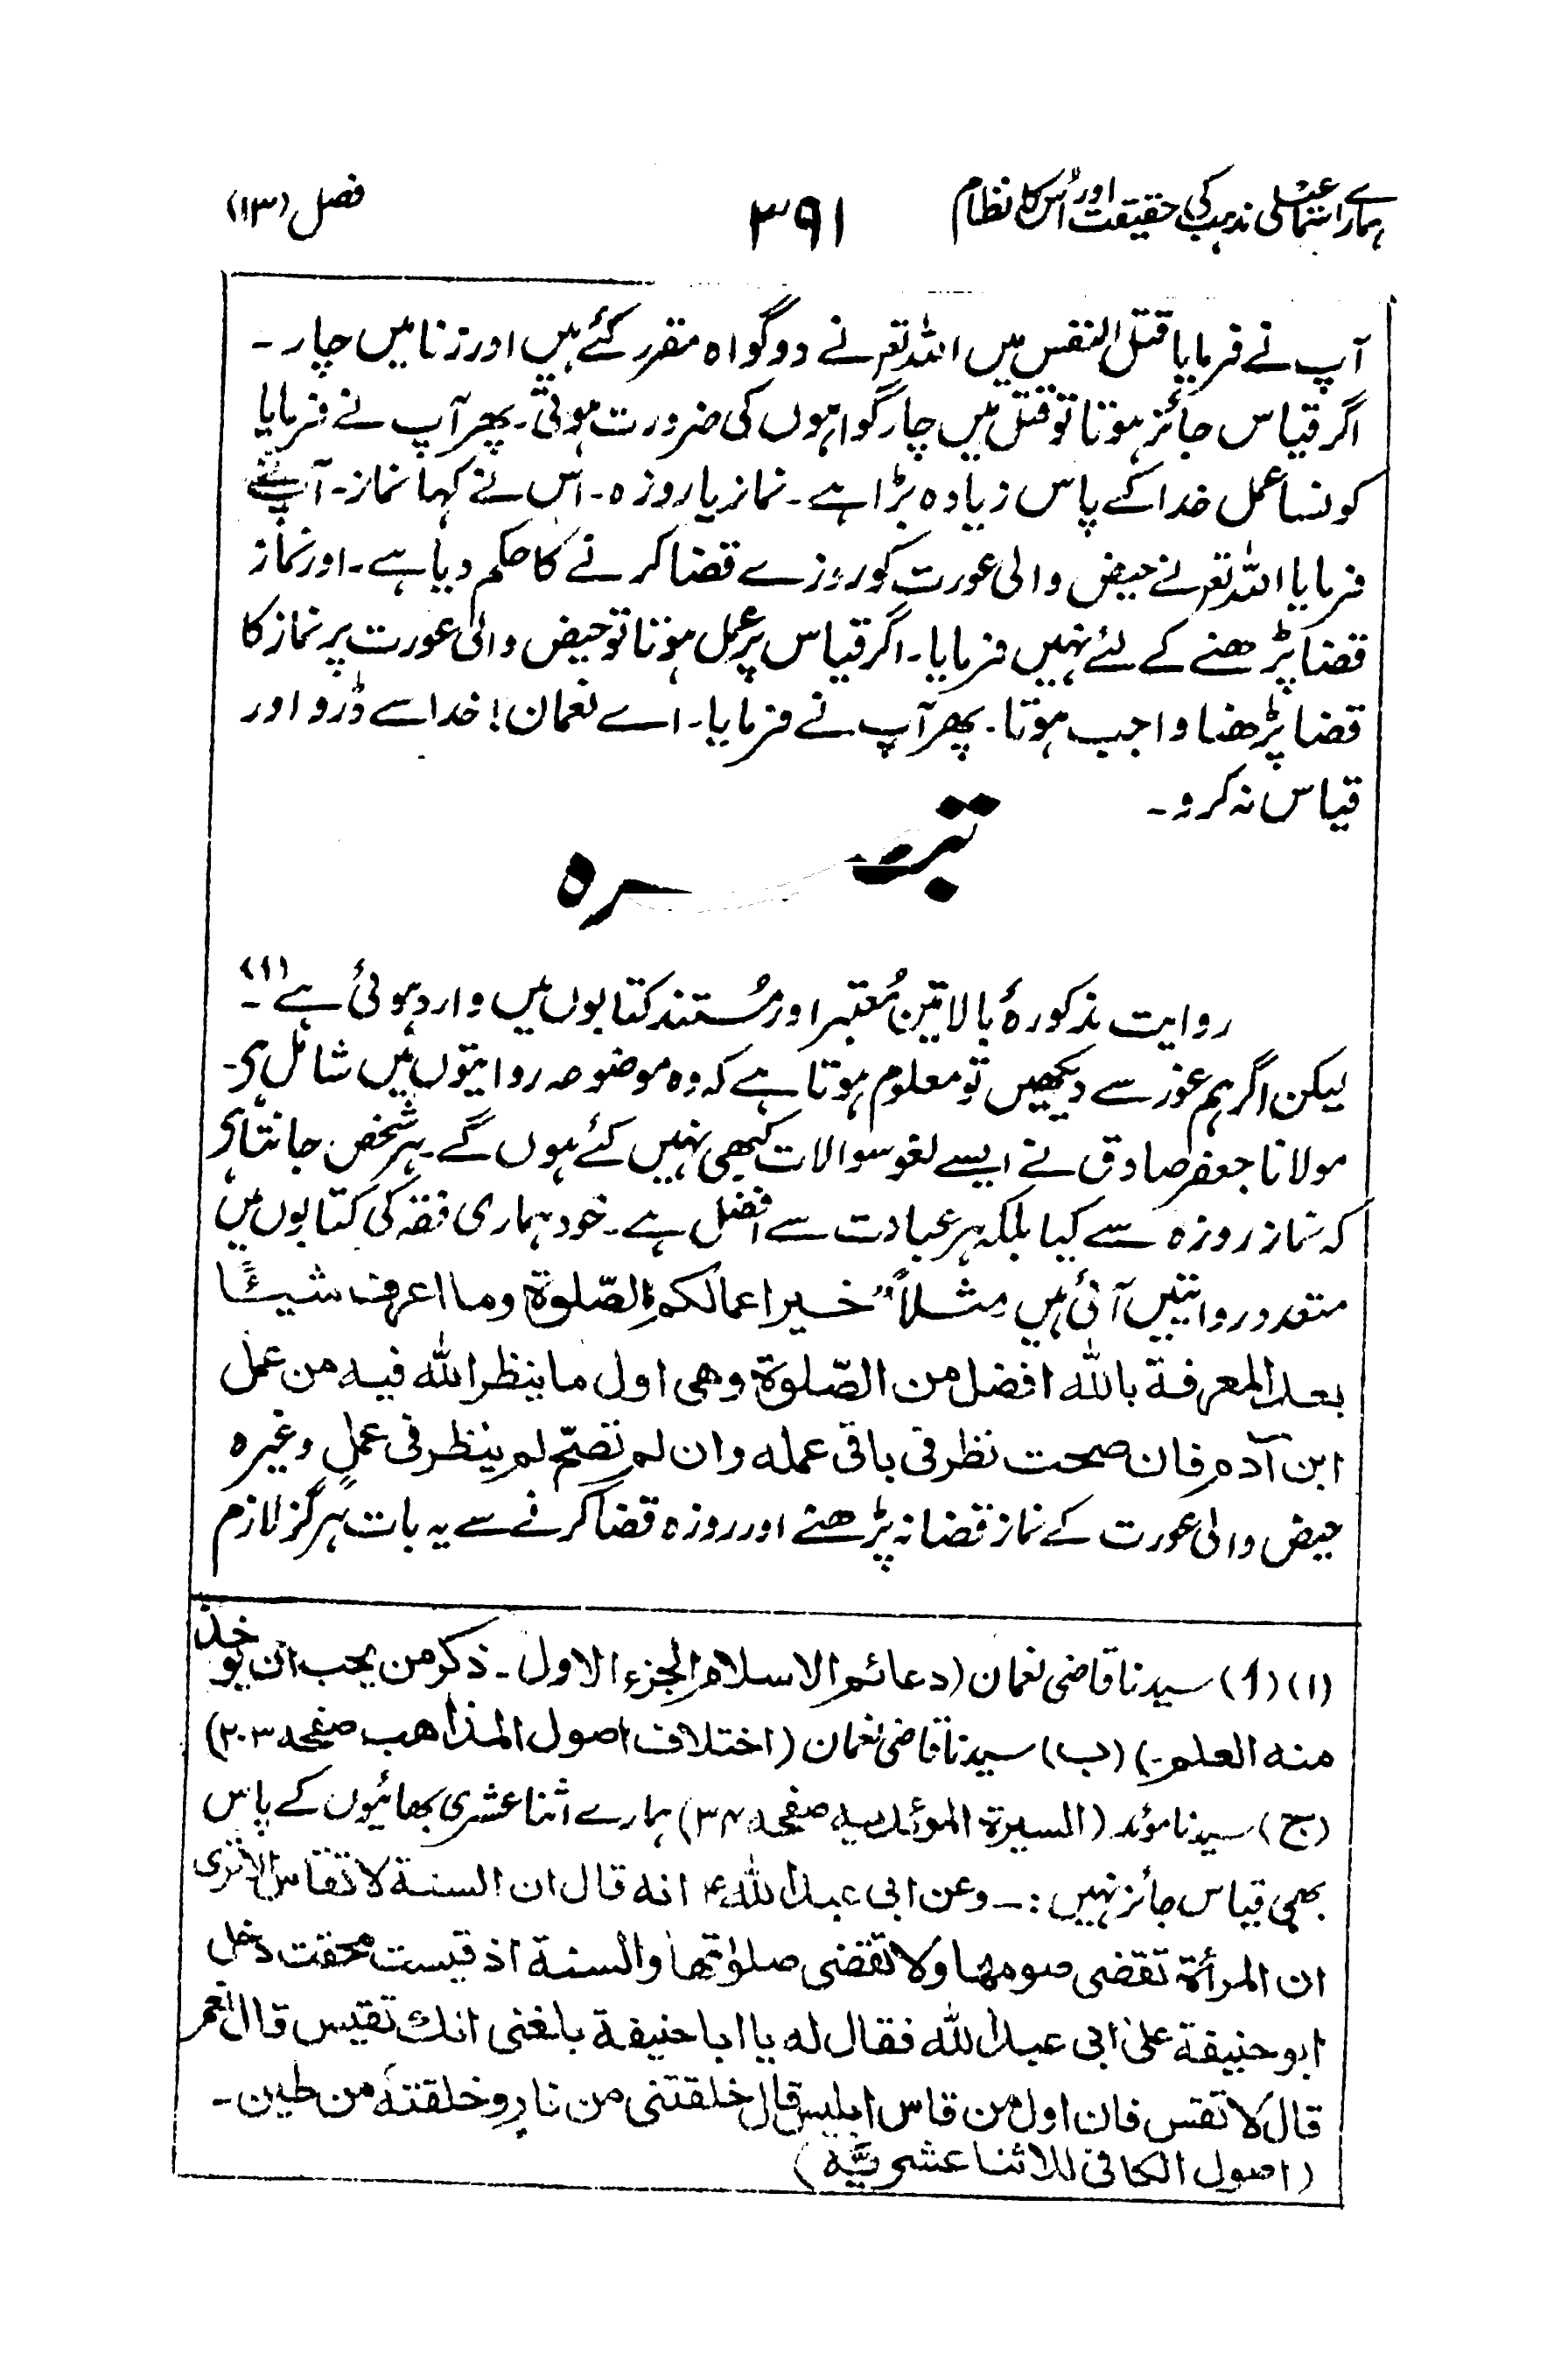 ہمارے اسمٰعیلی مذہب کی حقیقت اور اُس کا نظام ۳۹۱ فصل (۱۳)
آپ نے فرمایا قتل النفس میں اللہ تعہ نے دو گواہ مقرر کئے ہیں اور زنا میں چار ۔
اگر قیاس جائز ہوتا تو قتل میں چار گواہوں کی ضرورت ہوتی۔ پھر آپ نے فرمایا
کونسا عمل خدا کے پاس زیادہ بڑا ہے ۔ نماز یا روزہ ۔ اس نے کہا نماز۔ آپ نے
فرمایا اللہ تعہ نے حیض والی عورت کو روزے قضا کرنے کا حکم دیا ہے ۔ اور نماز
قضا پڑھنے کے لئے نہیں فرمایا ۔ اگر قیاس پر عمل ہوتا تو حیض والی عورت پر نماز کا
قضا پڑھنا واجب ہوتا ۔ پھر آپ نے فرمایا ۔ اے نعمان ! خدا سے ڈرو اور
قیاس نہ کرو ۔
تبصرہ
روایت مذکورۂ بالا تین مُعتبر اور مُستند کتابوں میں وارد ہوئی ہے (۱) ۔
لیکن اگر ہم غور سے دیکھیں تو معلوم ہوتا ہے کہ وہ موضوعہ روایتوں میں شامل ہی ۔
مولانا جعفر صادق نے ایسے لغو سوالات کبھی نہیں کئے ہوں گے ۔ ہر شخص جانتا ہی
کہ نماز روزہ سے کیا بلکہ ہر عبادت سے افضل ہے ۔ خود ہماری فقہ کی کتابوں میں
متعدد روایتیں آئی ہیں مثلاً "خیر اعمالکم الصّلوۃ وما اعرف شیئًا
بعد المعرفۃ باللہ افضل من الصّلوۃ وھی اول ما ینظر اللہ فیہ من عمل
ابن آدم فان صحت نظر فی باقی عملہ وان لم تصحّ لم ینظر فی عملٍ وغیرہ
حیض والی عورت کے نماز قضا نہ پڑھنے اور روزہ قضا کرنے سے یہ بات ہرگز لازم
(۱) (ا) سیدنا قاضی نعمان (دعائم الاسلام الجزء الاول ۔ ذکر من یجب ان یوخذ
منہ العلم ۔) (ب) سیدنا قاضی نعمان (اختلاف اصول المذاھب صفحہ ۲۰۳)
(ج) سیدنا مؤید (السیرۃ المؤیدیہ صفحہ ۳۴) ہمارے اثنا عشری بھائیوں کے پاس
بھی قیاس جائز نہیں :۔ وعن ابی عبد اللہ ۴ انہ قال ان السنۃ لا تقاس الا تری
ان المرأۃ تقضی صومھا ولا تقضی صلوٰتھا والسنۃ اذ قیست محقت دخل
ابو حنیفۃ علیٰ ابی عبد اللہ فقال لہ یا ابا حنیفۃ بلغنی انک تقیس قال نعم
قال لا تقس فان اول من قاس ابلیس قال خلقتنی من نارٍ وخلقتہ من طین ۔
(اصول الکافی للاثنا عشریّۃ)